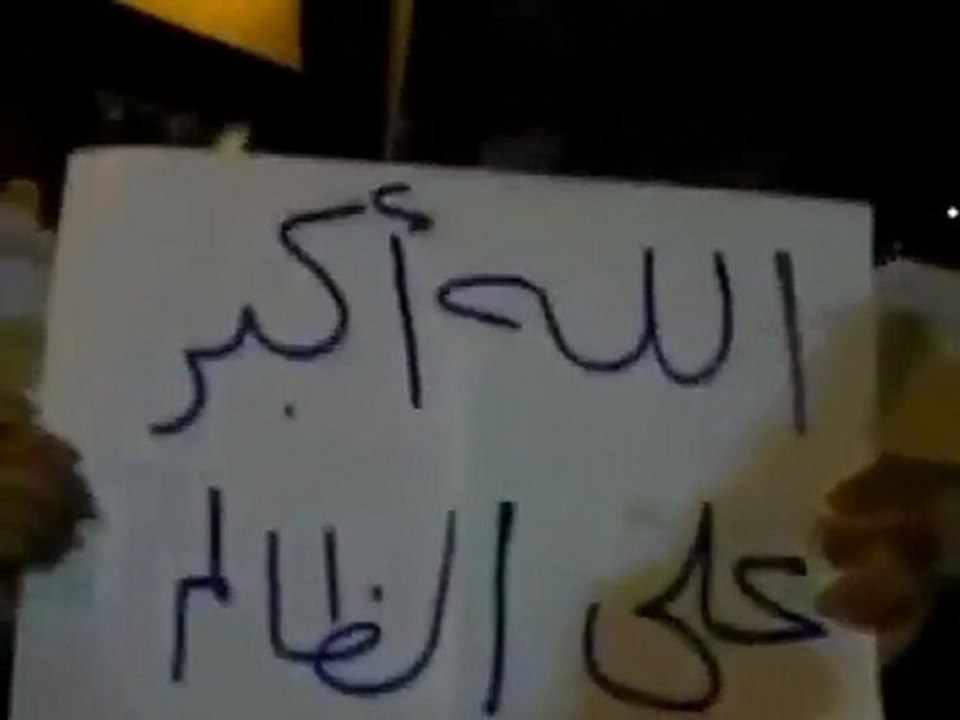 الله أكبر
على الظالم